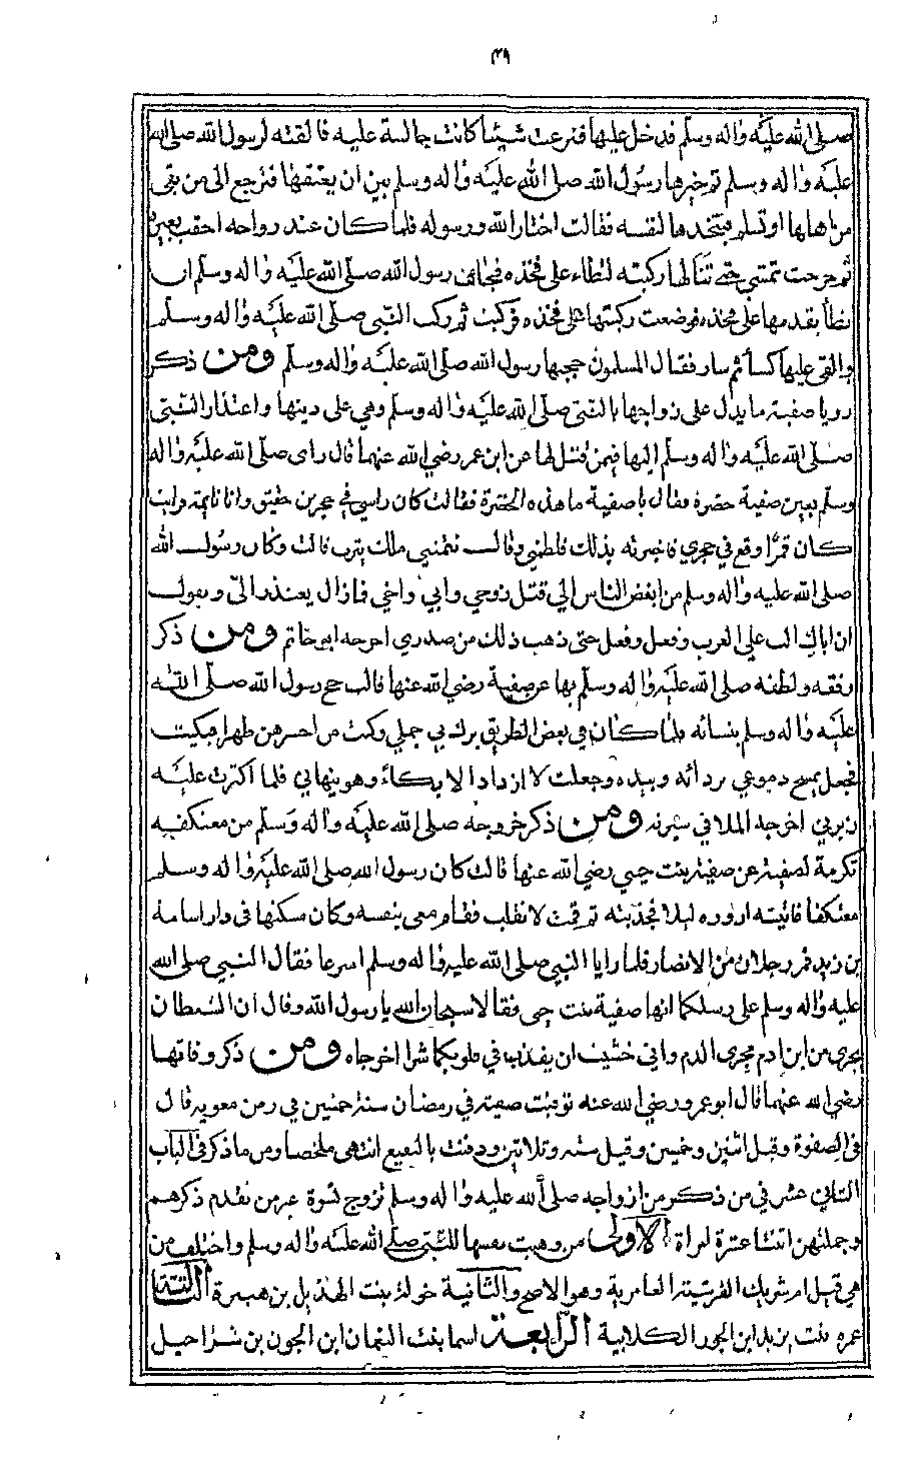 ٢٩
صلى الله عليه واله وسلم فدخل عليها فنزعت شيئا كانت جالسة عليه فالقته لرسول الله صلى الله
عليه واله وسلم ثم خيرها رسول الله صلى الله عليه واله وسلم بين ان يعتقها فترجع الى من بقى
من اهلها او تسلم فيتخذها لنفسه فقالت اختار الله ورسوله فلما كان عند رواحه احقب بعيره
ثم خرجت تمشي حتى ثنا لها ركبته لتطاء على فخذه فجافى رسول الله صلى الله عليه واله وسلم ان
يطأ بقدمها على فخذه فوضعت ركبتها على فخذه فركبت ثم ركب النبي صلى الله عليه واله وسلم
والقى عليها كسأ ثم سار فقال المسلمون حجبها رسول الله صلى الله عليه واله وسلم ومن ذكر
رويا صفية ما يدل على زواجها بالنبي صلى الله عليه واله وسلم وهي على دينها واعتذار النبي
صلى الله عليه واله وسلم اليها فيمن قتل لها عن ابن عمر رضي الله عنهما قال راى صلى الله عليه واله
وسلم بعين صفية خضرة فقال يا صفية ما هذه الخضرة فقالت كان راسي في حجر بن حقيق وانا نايمة ورايت
كان قمرًا وقع في حجري فاخبرته بذلك فلطمني وقالـــ تمنين ملك يثرب قالت وكان رسولـــ الله
صلى الله عليه واله وسلم من ابغض الناس الي قتل زوجي وابي واخي فما زال يعتذر اليّ ويقولـــ
ان اباك الب علي العرب وفعل وفعل حتى ذهب ذلك من صدري اخرجه ابو حاتم ومن ذكر
رفقه ولطفه صلى الله عليه واله وسلم بها عن صفية رضي الله عنها قالت حج رسول الله صلى الله
عليه واله وسلم بنسائه فلما كان في بعض الطريق برك بي جملي وكنت من احسرهن ظهرا فبكيت
فجعل يمسح دموعي بردائه وبيده وجعلت لا ازداد الا بكاءً وهو ينهاني فلما اكثرت عليه
زبرني اخرجه الملا في سيرته ومن ذكر خروجه صلى الله عليه واله وسلم من معتكفه
تكرمة لصفية عن صفية بنت حيي رضي الله عنها قالت كان رسول الله صلى الله عليه واله وسلم
معتكفا فاتيته ازوره ليلا فحدثته ثم قمت لانقلب فقام معي بنفسه وكان سكنها في دار اسامة
بن زيد فمر رجلان من الانصار فلما رايا النبي صلى الله عليه واله وسلم اسرعا فقال النبي صلى الله
عليه واله وسلم على رسلكما انها صفية بنت حيي فقالا سبحان الله يا رسول الله وقال ان الشيطان
يجري من ابن ادم مجرى الدم واني خشيت ان يقذف في قلوبكما شرا اخرجاه ومن ذكر وفاتها
رضي الله عنها قال ابو عمرو رضي الله عنه توفيت صفية في رمضان سنة خمسين في زمن معويه قال
في الصفوة وقيل اثنين وخمسين وقيل سته وثلاثين ودفنت بالبقيع انتهى ملخصا ومن ما ذكر في الباب
الثاني عشر في من ذكر من ازواجه صلى الله عليه واله وسلم تزوج نسوة غير من تقدم ذكرهم
وجملتهن اثنتا عشرة امراة الاولى من وهبت نفسها للنبي صلى الله عليه واله وسلم واختلف من
هي قيل ام شريك القرشية العامرية وهو الاصح والثانية خولة بنت الهذيل بن هبيرة الثالثة
عمره بنت يزيد ابن الجون الكلابية الرابعة اسما بنت النعمان ابن الجون بن شراحيل